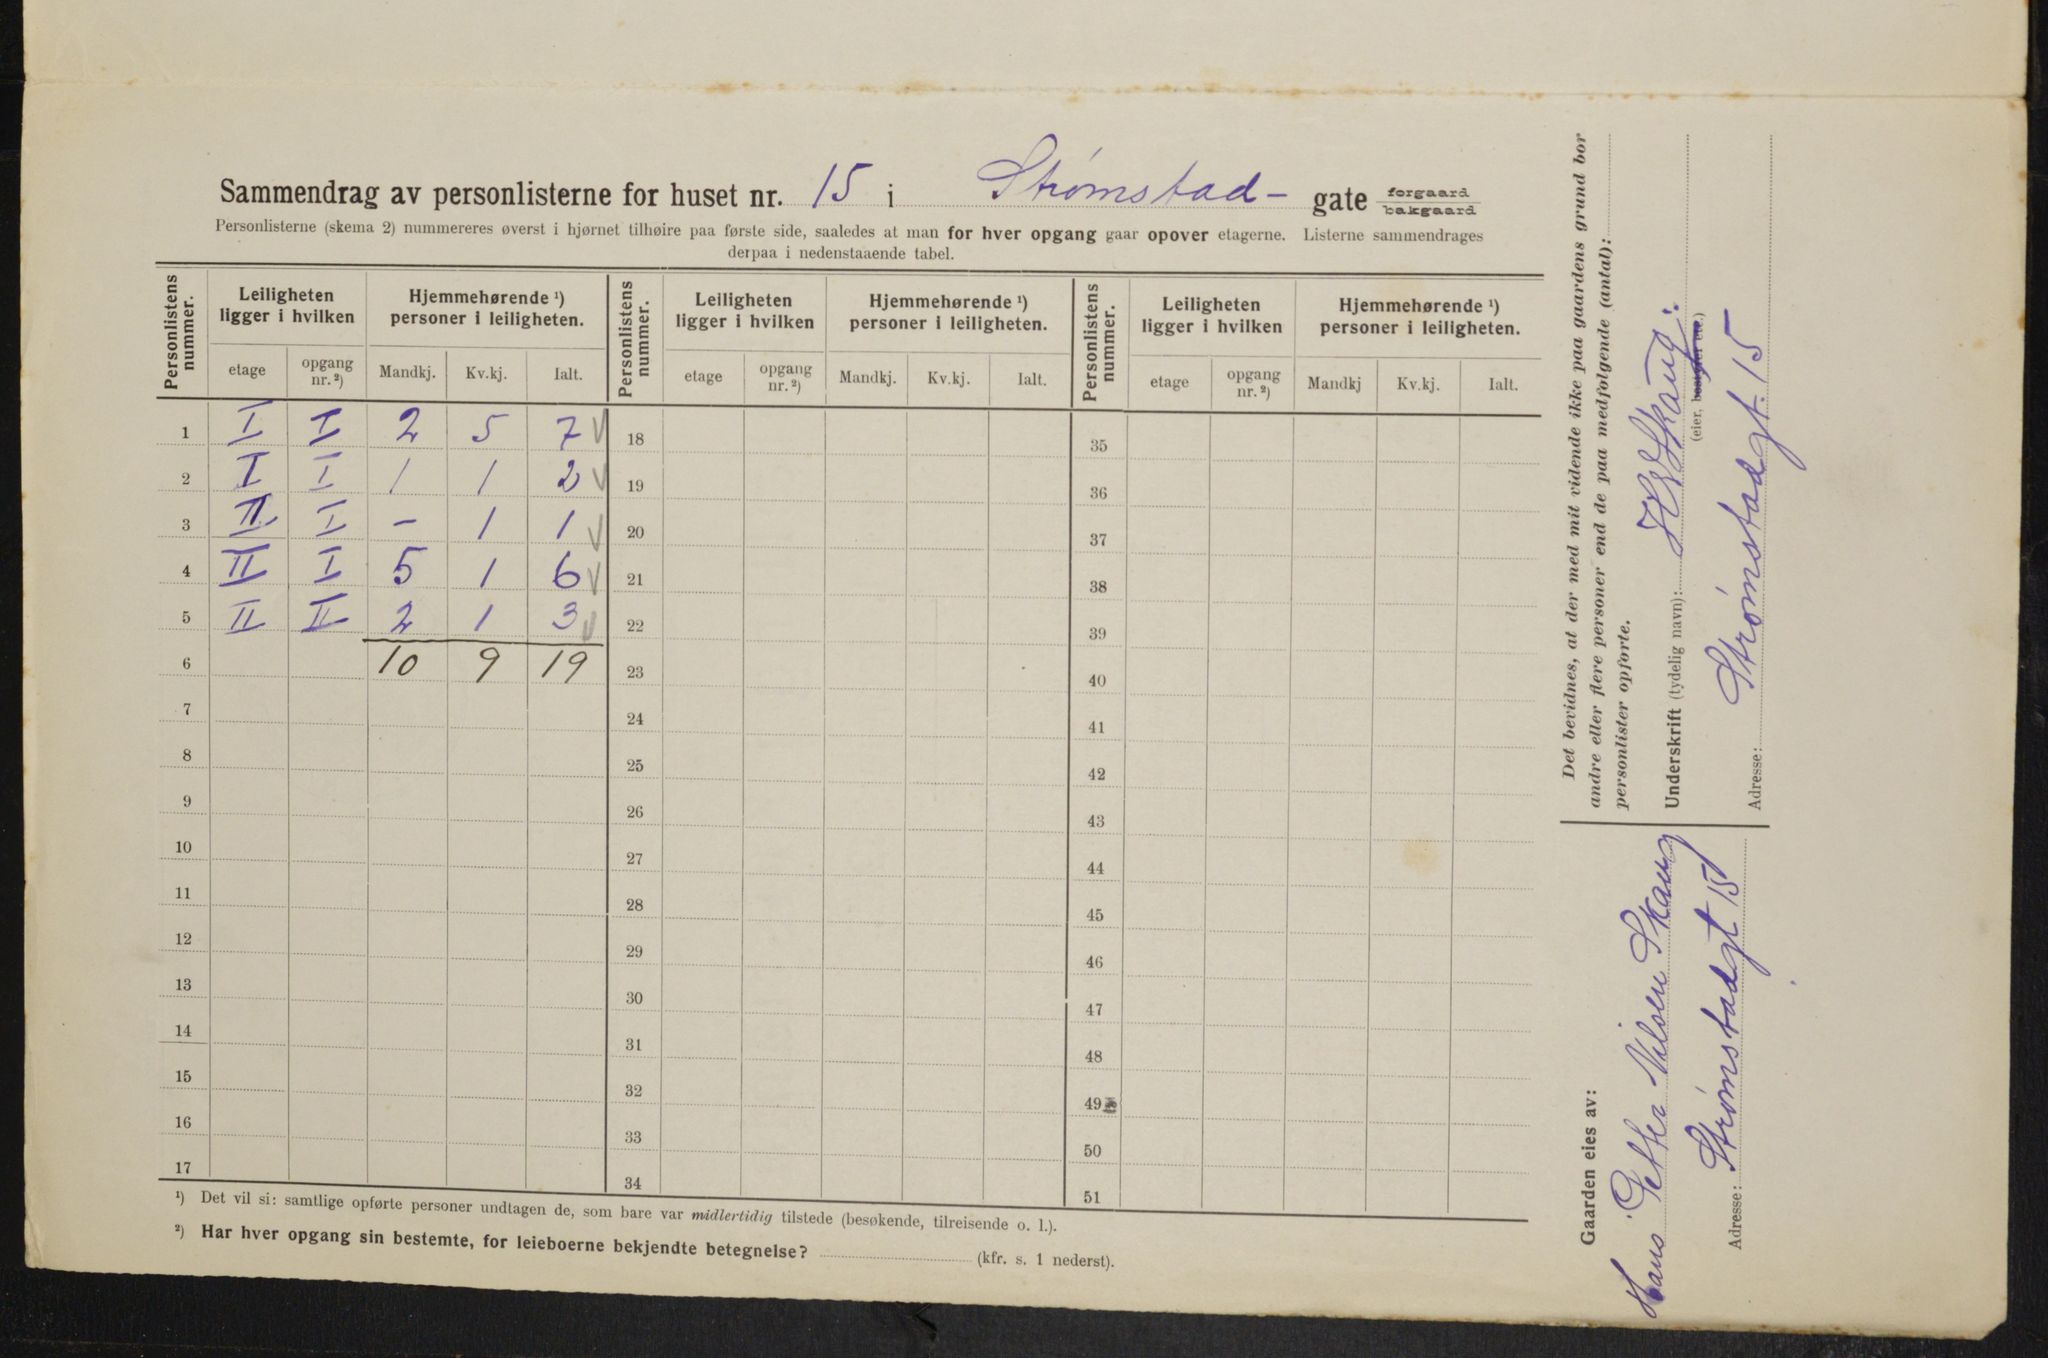 Sammendrag av personlisterne for huset nr. 15 i Strømstad- gate forgaard bakgaard
Personlisterne (skema 2) nummereres øverst i hjørnet tilhøire paa første side, saaledes at man for hver opgang gaar opover etagerne. Listerne sammendrages
derpaa i nedenstaaende tabel.
Personlistens nummer. Leiligheten ligger i hvilken Hjemmehørende ¹) personer i leiligheten. Personlistens nummer. Leiligheten ligger i hvilken Hjemmehørende ¹) personer i leiligheten. Personlistens nummer. Leiligheten ligger i hvilken Hjemmehørende ¹) personer i leiligheten.
etage opgang nr. ²) Mandkj. Kv.kj. Ialt. etage opgang nr. ²) Mandkj. Kv.kj. Ialt. etage opgang nr. ²) Mandkj Kv.kj. Ialt.
1 I I 2 5 7 18 35
2 I I 1 1 2 19 36
3 II I - 1 1 20 37
4 II I 5 1 6 21 38
5 II II 2 1 3 22 39
6 10 9 19 23 40
7 24 41
8 25 42
9 26 43
10 27 44
11 28 45
12 29 46
13 30 47
14 31 48
15 32 49
16 33 50
17 34 51
¹) Det vil si: samtlige opførte personer undtagen de, som bare var midlertidig tilstede (besøkende, tilreisende o. l.).
²) Har hver opgang sin bestemte, for leieboerne bekjendte betegnelse? (kfr. s. 1 nederst).
Det bevidnes, at der med mit vidende ikke paa gaardens grund bor
andre eller flere personer end de paa medfølgende (antal):
personlister opførte.
Underskrift (tydelig navn): Skaug.
(eier, bestyrer etc.)
Adresse: Strømstadgt. 15
Gaarden eies av:
Hans Petter Nilsen Skaug
Adresse: Strømstadgt 15